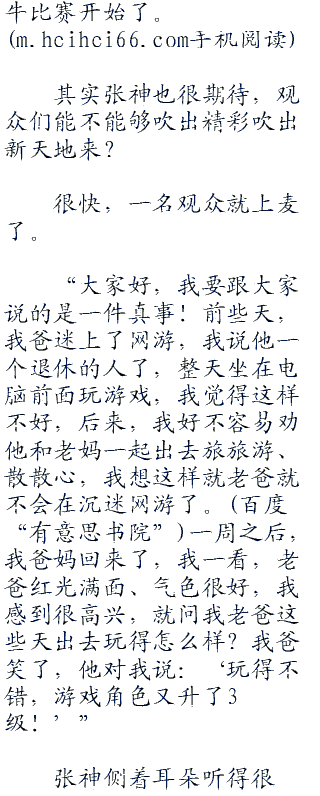 牛比赛开始了。
(m.hcihci66.com手机阅读)
其实张神也很期待，观
众们能不能够吹出精彩吹出
新天地来？
很快，一名观众就上麦
了。
“大家好，我要跟大家
说的是一件真事！前些天，
我爸迷上了网游，我说他一
个退休的人了，整天坐在电
脑前面玩游戏，我觉得这样
不好，后来，我好不容易劝
他和老妈一起出去旅旅游、
散散心，我想这样就老爸就
不会在沉迷网游了。(百度
“有意思书院”)一周之后，
我爸妈回来了，我一看，老
爸红光满面、气色很好，我
感到很高兴，就问我老爸这
些天出去玩得怎么样？我爸
笑了，他对我说：‘玩得不
错，游戏角色又升了3
级！’”
张神侧着耳朵听得很